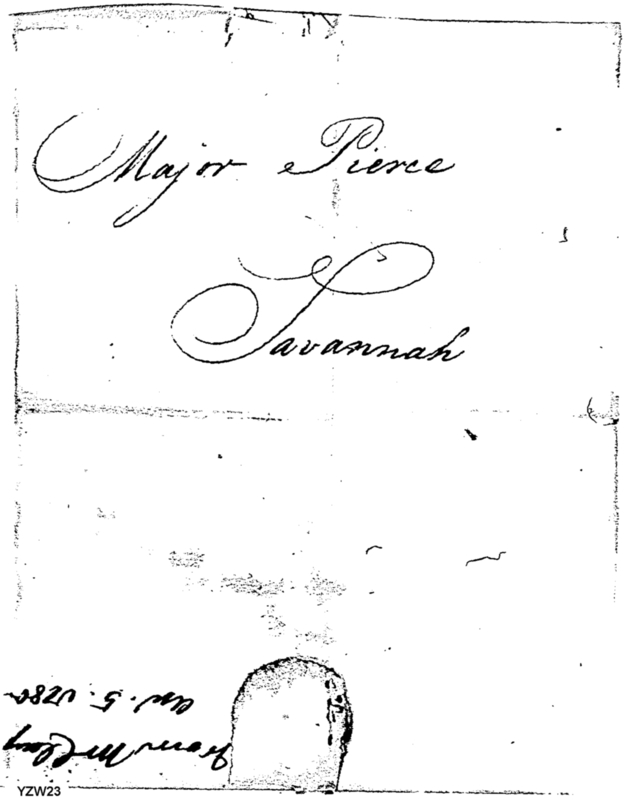 Major Pierce
Savannah
from Mr Clay
5.
YZW23